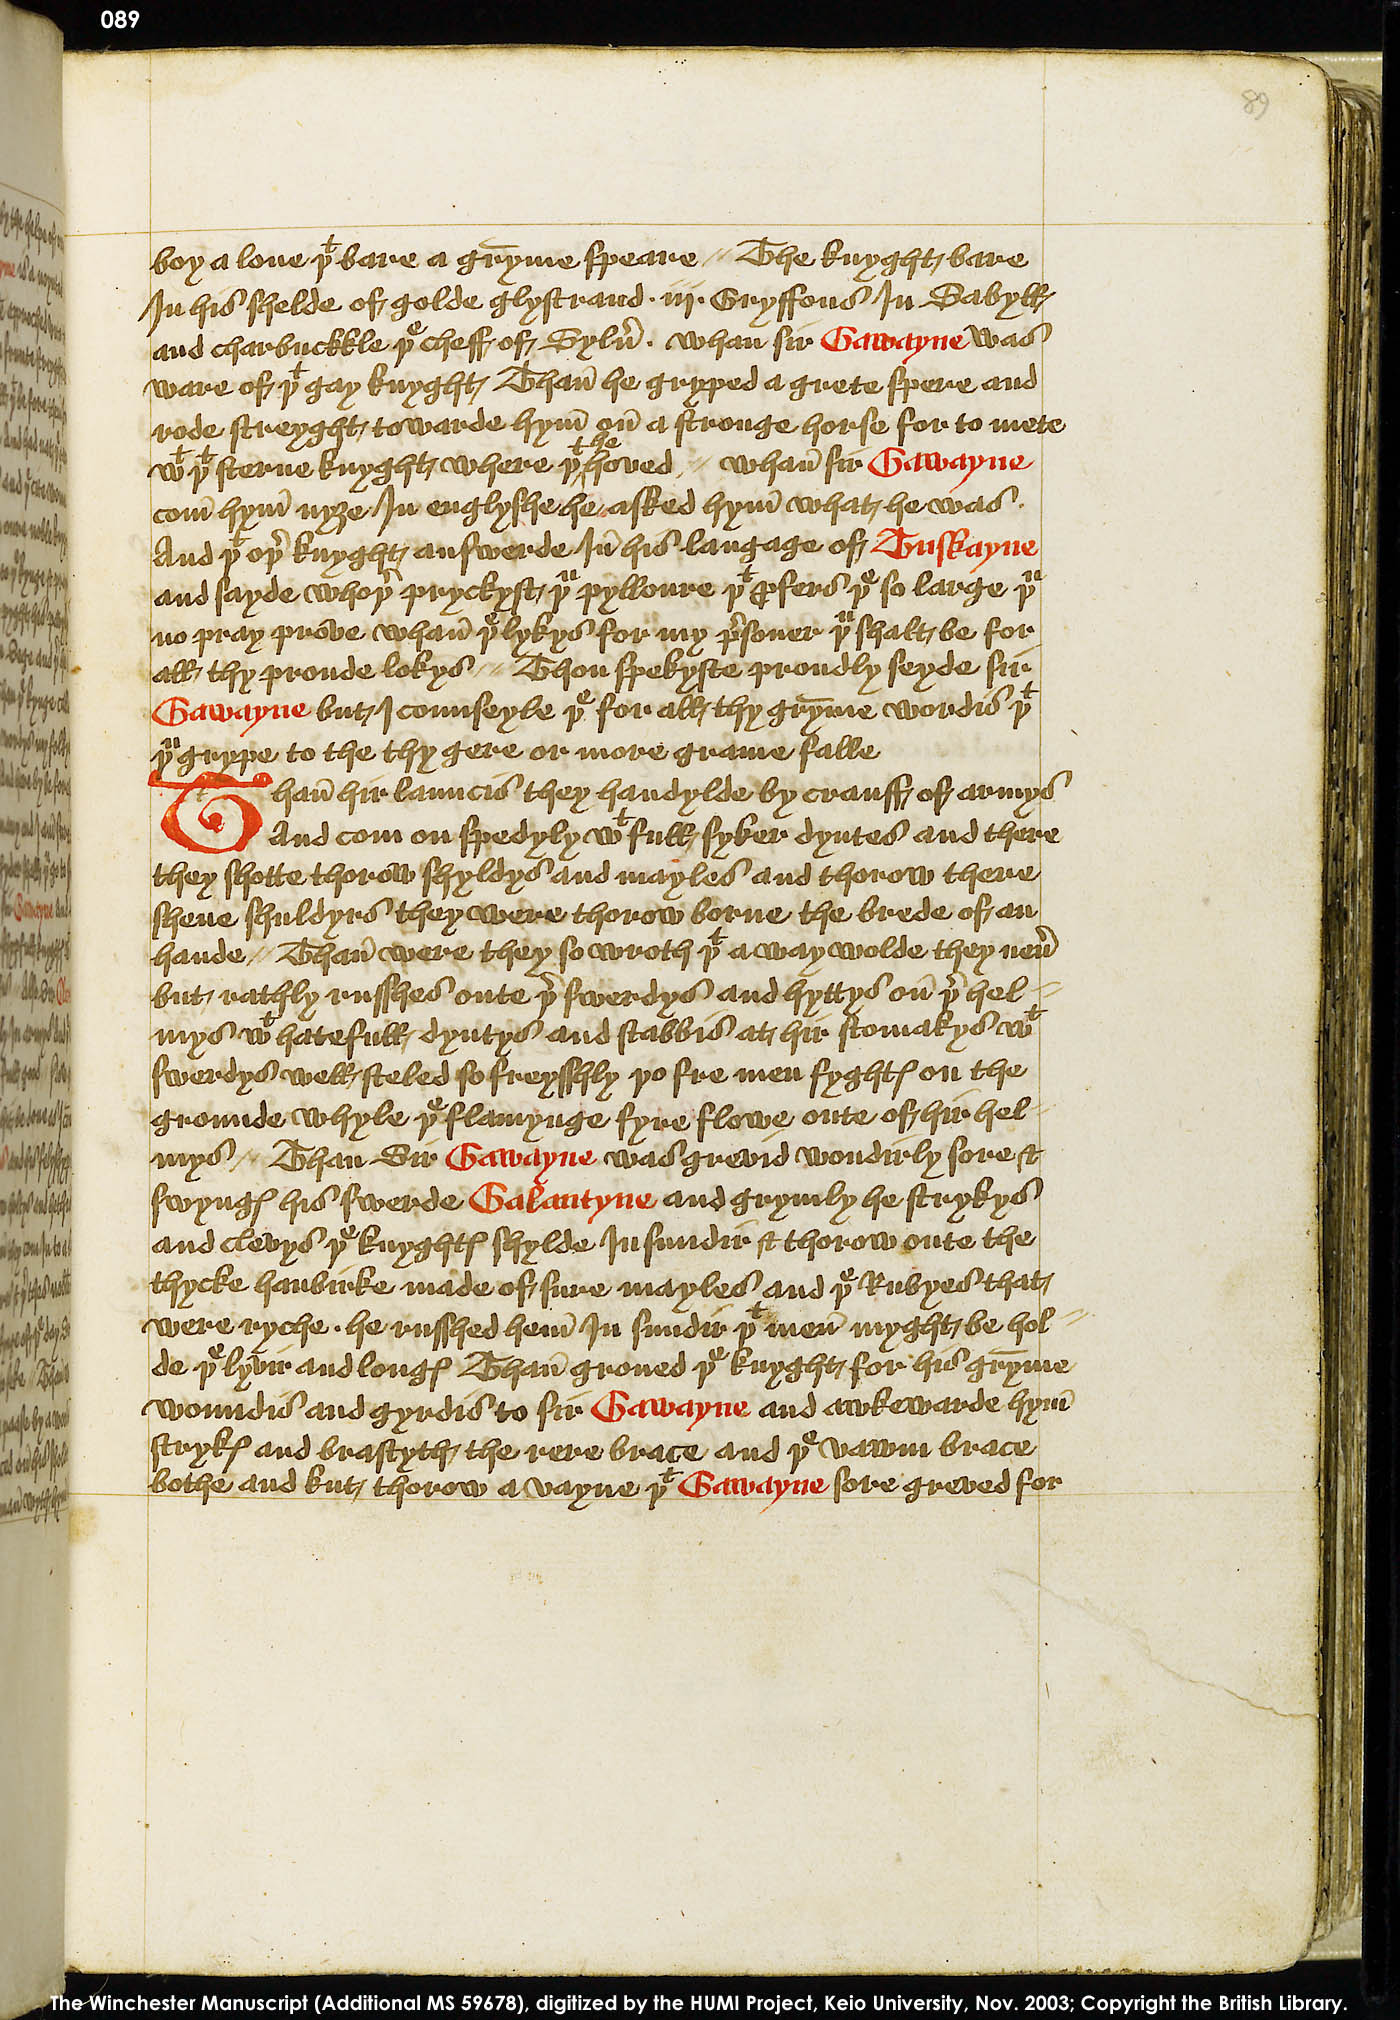 089
89
boy a lone þᵗ bare a gryme speare // The knyght bare
In his shelde of golde glystrand · iij · Gryffons In Sabyll
and charbuckkle þᵉ cheff of Sylu̅ · whan sir Gawayne was
ware of þᵗ gay knyght Than̅ he gryped a grete spere and
rode streyght towarde hym̅ on̅ a stronge horse for to mete
wᵗ þᵗ sterne knyght where þᵗ he hoved // whan̅ sir Gawayne
com̅ hym̅ nyȝe In englyshe he asked hym̅ what he was ·
And þᵗ oþ̅ knyght answerde In̅ his langage of Tuskayne
and sayde whoþ̅ pryckyst þᵘ pylloure þᵗ ꝓfers þᵉ so large þᵘ
no pray prove whan̅ þᵉ lykys for my p̅soner þᵘ shalt be for
all thy proude lokys // Thou spekyste proudly seyde sir
Gawayne but I counseyle þᵉ for all thy gryme wordis þᵗ
þᵘ grype to the thy gere or more grame falle
Than̅ hir launcis they handylde by crauff of armys
And com on spedyly wᵗ full syker dyntes and there
they shotte thorow shyldys and mayles and thorow there
shene shuldyrs they were thorow borne the brede of an
hande // Than̅ were they so wroth þᵗ a way wolde they neu̅
but rathly russhes oute þ̅ swerdys and hyttys on̅ þ̅ hel=
mys wᵗ hatefull dyntys and stabbis at hir stomakys wᵗ
swerdys well steled so freysshly þo fre men fyghtꝭ on the
grounde whyle þᵉ flamynge fyre flowe oute of hir hel=
mys // Than Sir Gawayne was grevid wondirly sore &
swyngꝭ his swerde Galantyne and grymly he strykys
and clevys þᵉ knyghtꝭ shylde In sundir & thorow oute the
thycke haubirke made of sure mayles and þᵉ Rubyes that
were ryche · he russhed hem̅ In sundir þᵗ men̅ myght be hol=
de þᵉ lyvir and longꝭ Than̅ groned þᵉ knyght for his gryme
woundis and gyrdis to sir Gawayne and awkewarde hym̅
strykꝭ and brastyth the rere brace and þᵉ vawm brace
bothe and kut thorow a vayne þᵗ Gawayne sore greved for
The Winchester Manuscript (Additional MS 59678), digitized by the HUMI Project, Keio University, Nov. 2003; Copyright the British Library.